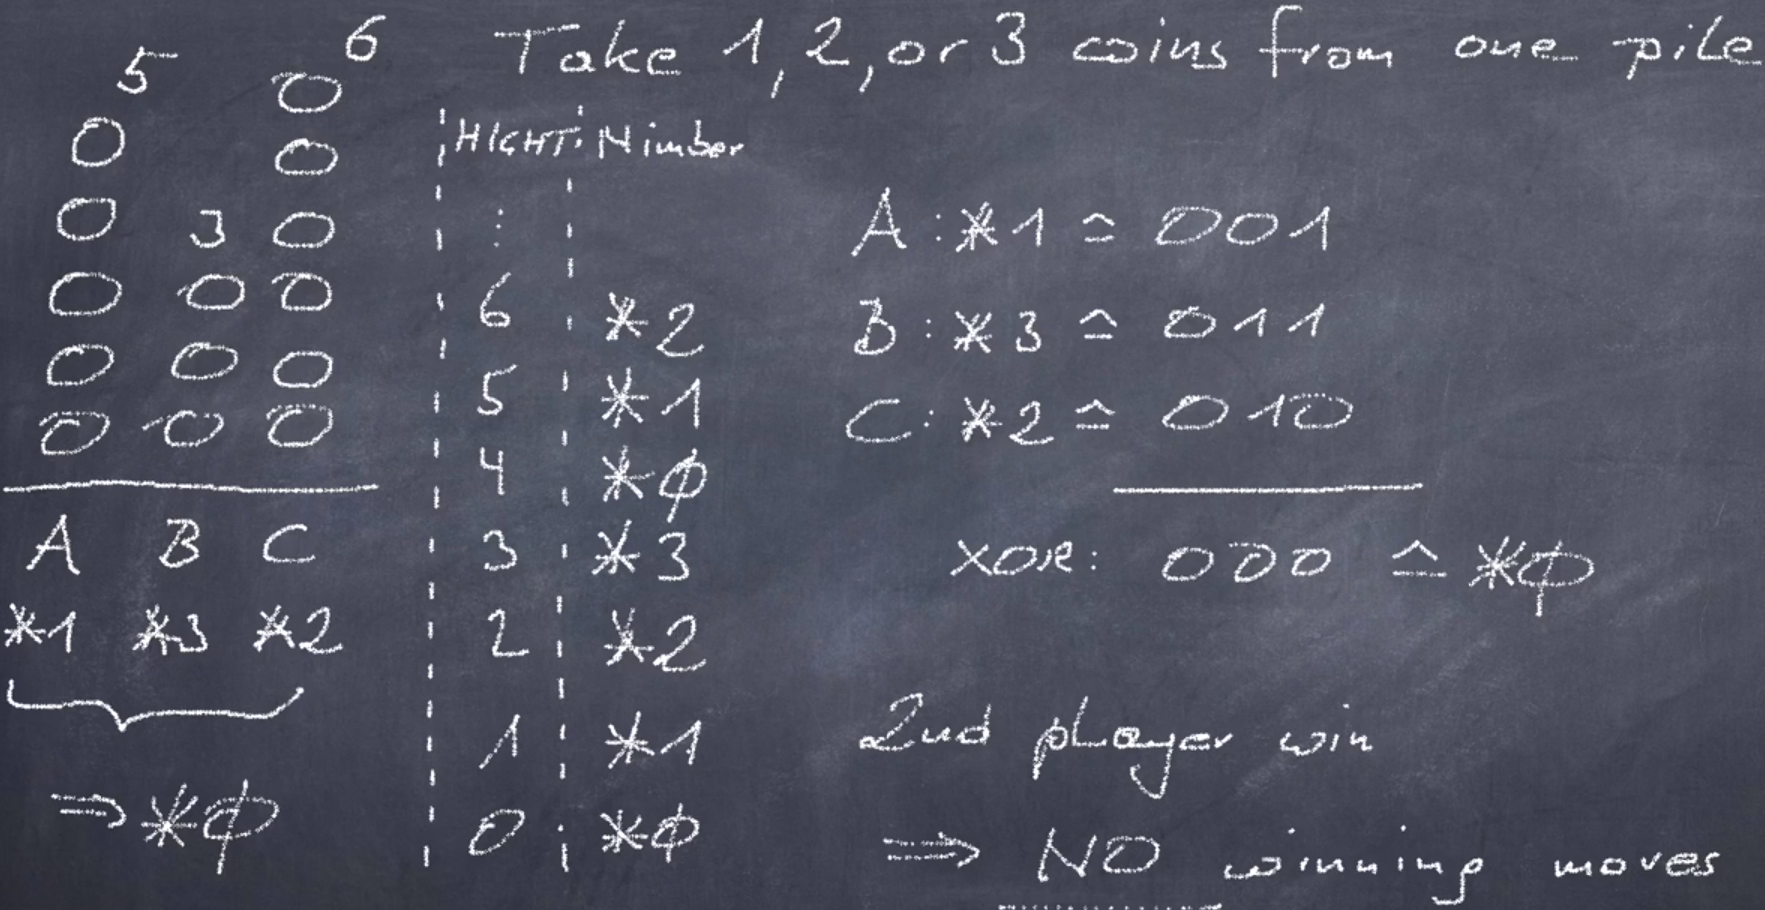 Take 1, 2, or 3 coins from one pile
5 6
3
A B C
*1 *3 *2
⇒ *φ
HIGHT Nimber
⋮
6 *2
5 *1
4 *φ
3 *3
2 *2
1 *1
0 *φ
A: *1 ≙ 001
B: *3 ≙ 011
C: *2 ≙ 010
XOR: 000 ≙ *φ
2nd player win
⇒ NO winning moves